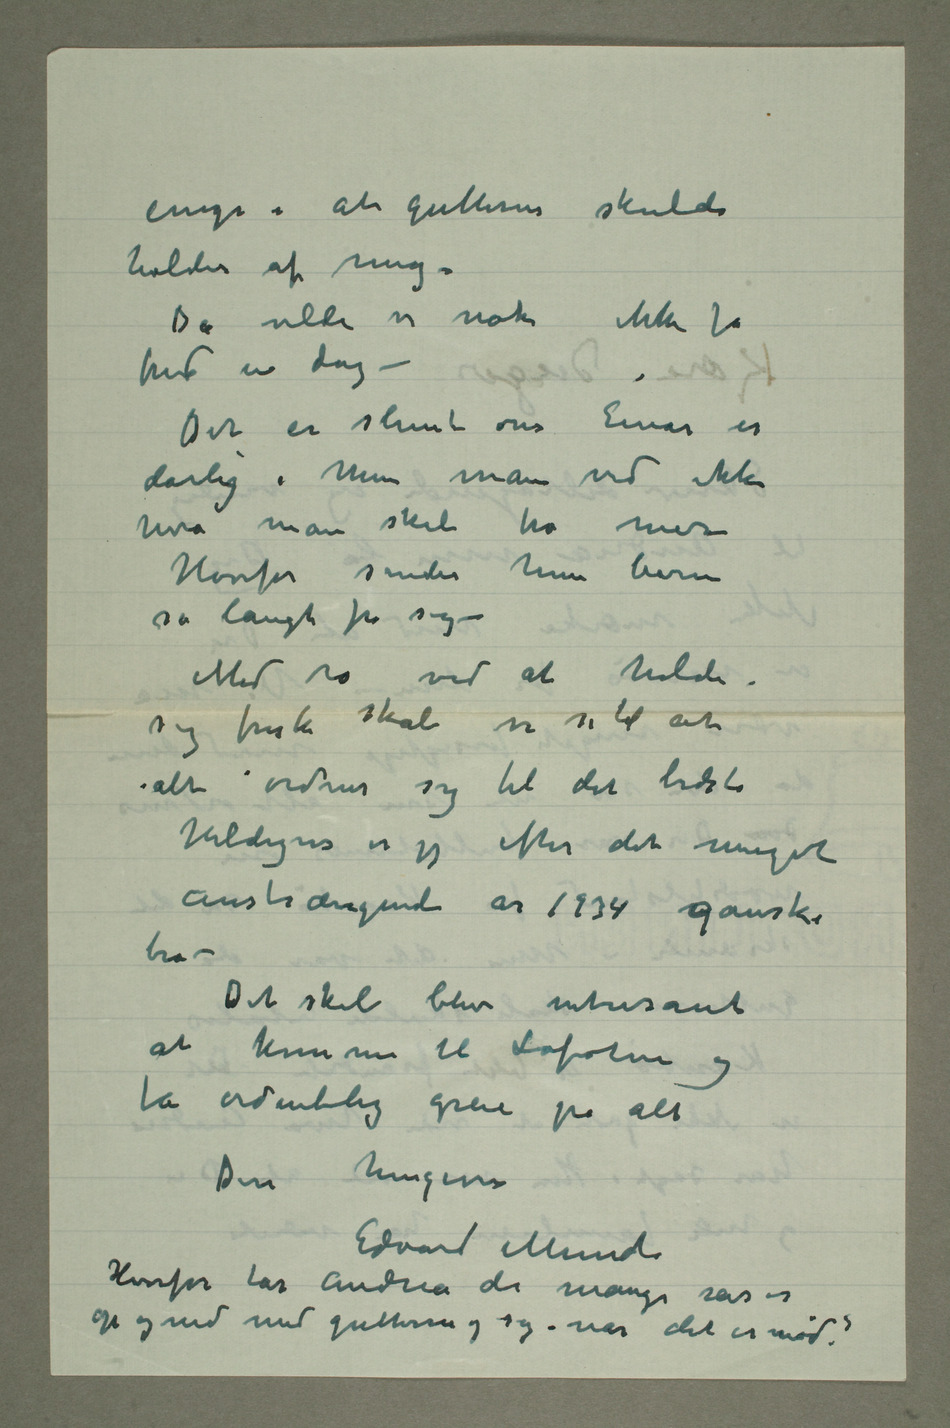 enige i at gutterne skulde
holdes af mig –
Da vilde vi nok ikke få
fred en dag –
Det er slemt om Einar er
dårlig. Men man ved ikke
hva man skal tro mer
Hvorfor sender hun barn
så langt fra sig –
Med ro ved at holde
sig frisk skal vi se til at
alt ordner sig til det bedste
Heldigvis er jeg efter det meget
anstrængende år 1934 ganske
bra –
Det skal blive intresant
at komme til Lofoten og
få ordentlig greie på alt
Din hengivne
Edvard Munch
Hvorfor tar Andrea de mange
op og ned med gutterne og sig – når det er nød?